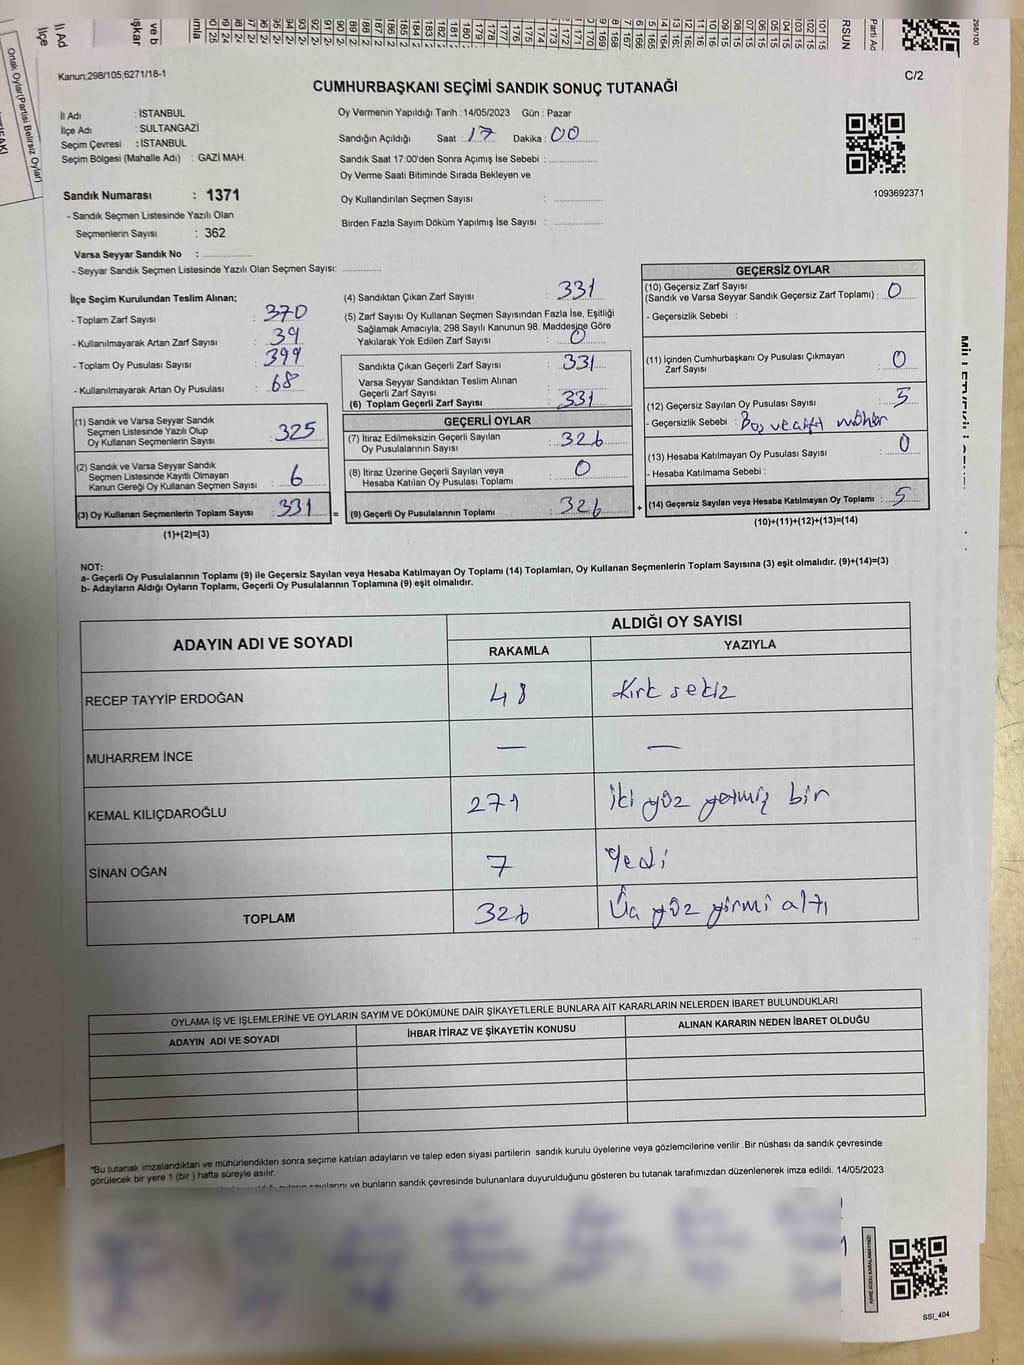 Kanun;298/105;6271/18-1
C/2
CUMHURBAŞKANI SEÇİMİ SANDIK SONUÇ TUTANAĞI
İl Adı : İSTANBUL
İlçe Adı : SULTANGAZİ
Seçim Çevresi : İSTANBUL
Seçim Bölgesi (Mahalle Adı) : GAZİ MAH.
Oy Vermenin Yapıldığı Tarih :14/05/2023 Gün : Pazar
Sandığın Açıldığı Saat : 17 Dakika : 00
Sandık Saat 17:00'den Sonra Açımış İse Sebebi :
Oy Verme Saati Bitiminde Sırada Bekleyen ve
Oy Kullandırılan Seçmen Sayısı :
Birden Fazla Sayım Döküm Yapılmış İse Sayısı :
1093692371
Sandık Numarası : 1371
- Sandık Seçmen Listesinde Yazılı Olan
Seçmenlerin Sayısı : 362
Varsa Seyyar Sandık No :
- Seyyar Sandık Seçmen Listesinde Yazılı Olan Seçmen Sayısı:
İlçe Seçim Kurulundan Teslim Alınan;
- Toplam Zarf Sayısı : 370
- Kullanılmayarak Artan Zarf Sayısı : 39
- Toplam Oy Pusulası Sayısı : 399
- Kullanılmayarak Artan Oy Pusulası : 68
(1) Sandık ve Varsa Seyyar Sandık
Seçmen Listesinde Yazılı Olup
Oy Kullanan Seçmenlerin Sayısı : 325
(2) Sandık ve Varsa Seyyar Sandık
Seçmen Listesinde Kayıtlı Olmayan
Kanun Gereği Oy Kullanan Seçmen Sayısı : 6
(3) Oy Kullanan Seçmenlerin Toplam Sayısı : 331
(1)+(2)=(3)
(4) Sandıktan Çıkan Zarf Sayısı : 331
(5) Zarf Sayısı Oy Kullanan Seçmen Sayısından Fazla İse, Eşitliği
Sağlamak Amacıyla; 298 Sayılı Kanunun 98. Maddesine Göre
Yakılarak Yok Edilen Zarf Sayısı : 0
Sandıkta Çıkan Geçerli Zarf Sayısı : 331
Varsa Seyyar Sandıktan Teslim Alınan
Geçerli Zarf Sayısı
(6) Toplam Geçerli Zarf Sayısı : 331
GEÇERLİ OYLAR
(7) İtiraz Edilmeksizin Geçerli Sayılan
Oy Pusulalarının Sayısı : 326
(8) İtiraz Üzerine Geçerli Sayılan veya
Hesaba Katılan Oy Pusulası Toplamı : 0
= (9) Geçerli Oy Pusulalarının Toplamı : 326
GEÇERSİZ OYLAR
(10) Geçersiz Zarf Sayısı
(Sandık ve Varsa Seyyar Sandık Geçersiz Zarf Toplamı) : 0
- Geçersizlik Sebebi :
(11) İçinden Cumhurbaşkanı Oy Pusulası Çıkmayan
Zarf Sayısı : 0
(12) Geçersiz Sayılan Oy Pusulası Sayısı : 5
- Geçersizlik Sebebi : Boş ve çift mühür
(13) Hesaba Katılmayan Oy Pusulası Sayısı : 0
- Hesaba Katılmama Sebebi :
+ (14) Geçersiz Sayılan veya Hesaba Katılmayan Oy Toplamı : 5
(10)+(11)+(12)+(13)=(14)
NOT:
a- Geçerli Oy Pusulalarının Toplamı (9) ile Geçersiz Sayılan veya Hesaba Katılmayan Oy Toplamı (14) Toplamları, Oy Kullanan Seçmenlerin Toplam Sayısına (3) eşit olmalıdır. (9)+(14)=(3)
b- Adayların Aldığı Oyların Toplamı, Geçerli Oy Pusulalarının Toplamına (9) eşit olmalıdır.
ADAYIN ADI VE SOYADI
ALDIĞI OY SAYISI
RAKAMLA YAZIYLA
RECEP TAYYİP ERDOĞAN 48 Kırk sekiz
MUHARREM İNCE — —
KEMAL KILIÇDAROĞLU 271 İki yüz yetmiş bir
SİNAN OĞAN 7 Yedi
TOPLAM 326 Üç yüz yirmi altı
OYLAMA İŞ VE İŞLEMLERİNE VE OYLARIN SAYIM VE DÖKÜMÜNE DAİR ŞİKAYETLERLE BUNLARA AİT KARARLARIN NELERDEN İBARET BULUNDUKLARI
ADAYIN ADI VE SOYADI İHBAR İTİRAZ VE ŞİKAYETİN KONUSU ALINAN KARARIN NEDEN İBARET OLDUĞU
*Bu tutanak imzalandıktan ve mühürlendikten sonra seçime katılan adayların ve talep eden siyasi partilerin sandık kurulu üyelerine veya gözlemcilerine verilir .Bir nüshası da sandık çevresinde
görülecek bir yere 1 (bir ) hafta süreyle asılır.
ve bunların sandık çevresinde bulunanlara duyurulduğunu gösteren bu tutanak tarafımızdan düzenlenerek imza edildi. 14/05/2023
SSI_404